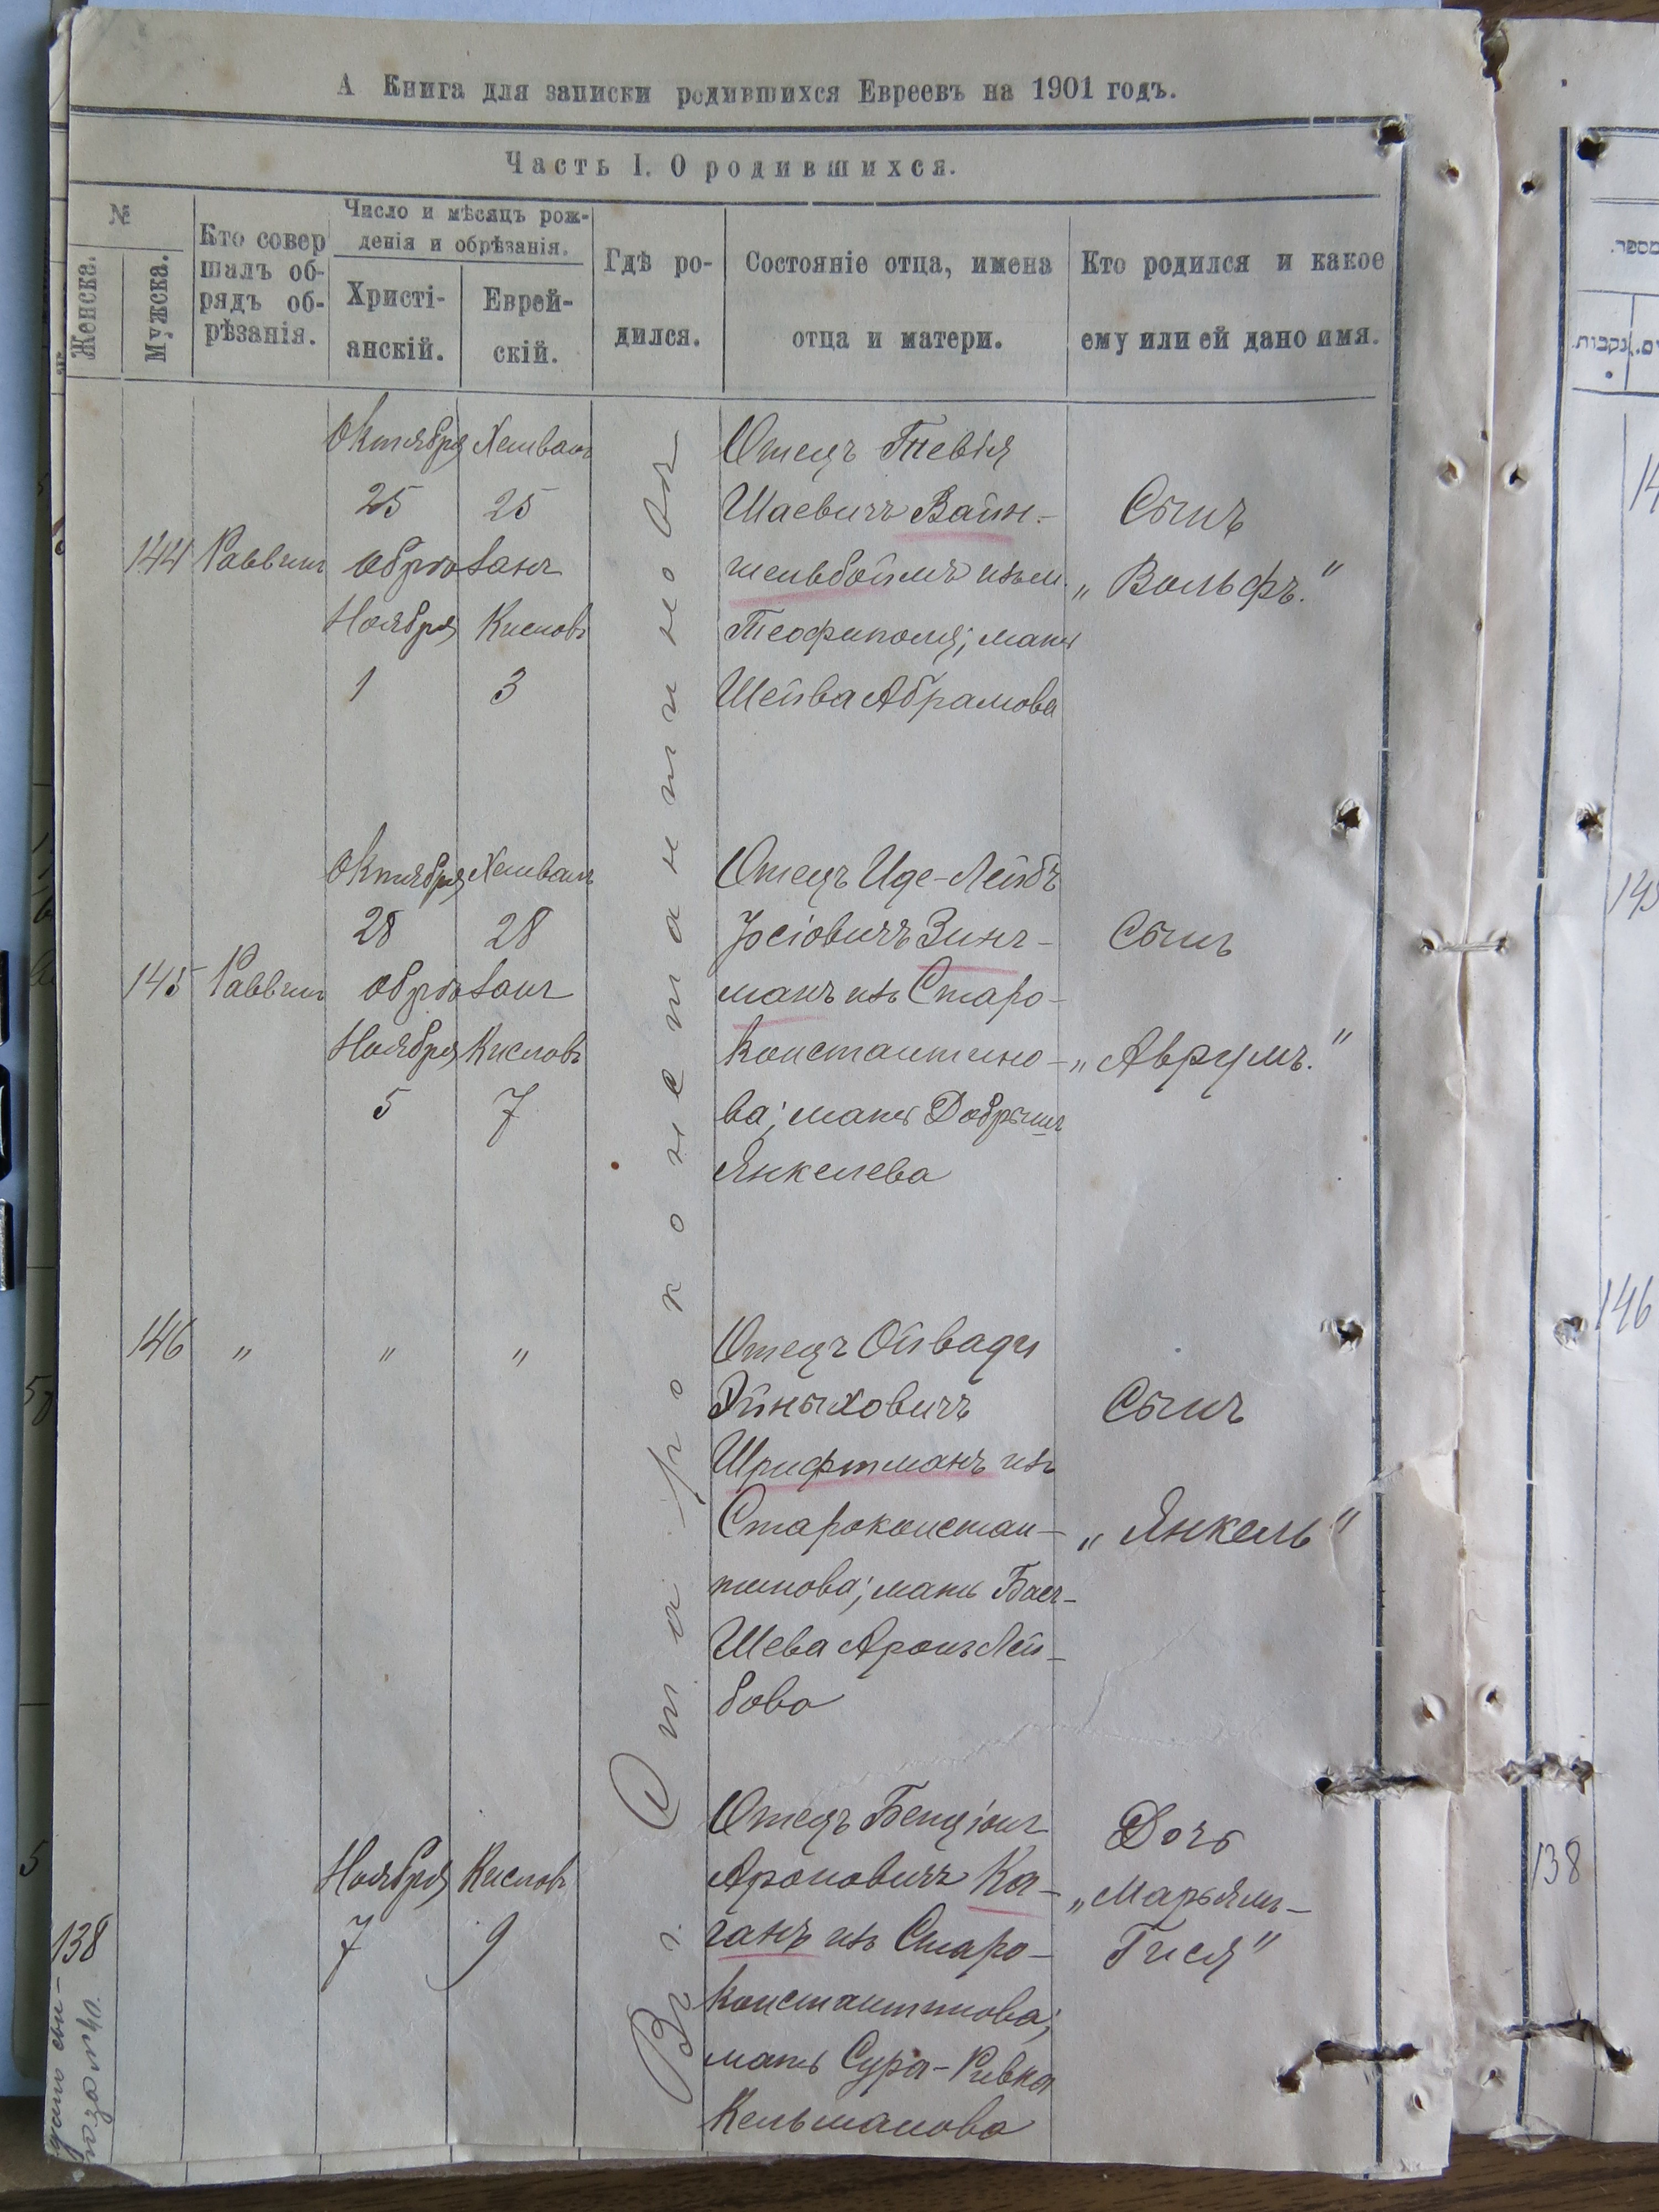 А Книга для записки родившихся Евреевъ на 1901 годъ.
Часть I. О родившихся.
№
Женска.
Мужска.
Кто совер
шалъ об-
рядъ об-
рѣзанія.
Число и мѣсяцъ рож-
денія и обрѣзанія.
Христі-
анскій.
Еврей-
скій.
Гдѣ ро-
дился.
Состояніе отца, имена
отца и матери.
Кто родился и какое
ему или ей дано имя.
Въ г. Старокопстантиновѣ
144 Раввинъ
Октября Хешванъ
25 25
обрѣзанъ
Ноября Кислевъ
1 3
Отецъ Тевія
Шаевичъ Вайн-
шельбоймъ изъ м.
Теофиполя; мать
Шейва Абрамова
Сынъ
„Вольфъ."
145 Раввинъ
Октября Хешванъ
28 28
обрѣзанъ
Ноября Кислевъ
5 7
Отецъ Иде-Лейбъ
Іосіовичъ Зинг-
манъ изъ Старо-
константино-
ва; мать Добрышъ
Янкелева
Сынъ
„Аврумъ."
146 „ „ „
Отецъ Ойвади
Эйныховичъ
Шрифтманъ изъ
Староконстан-
тинова; мать Бас-
Шева Аронъ Лей-
бова
Сынъ
„Янкель"
138
Ноября Кислевъ
7 9
Отецъ Бенціонъ
Ароновичъ Ка-
ганъ изъ Старо-
константинова;
мать Сура-Ривка
Кельманова
Дочь
„Марьямъ-
Гися"
מספר.
נקבות.
145
146
138